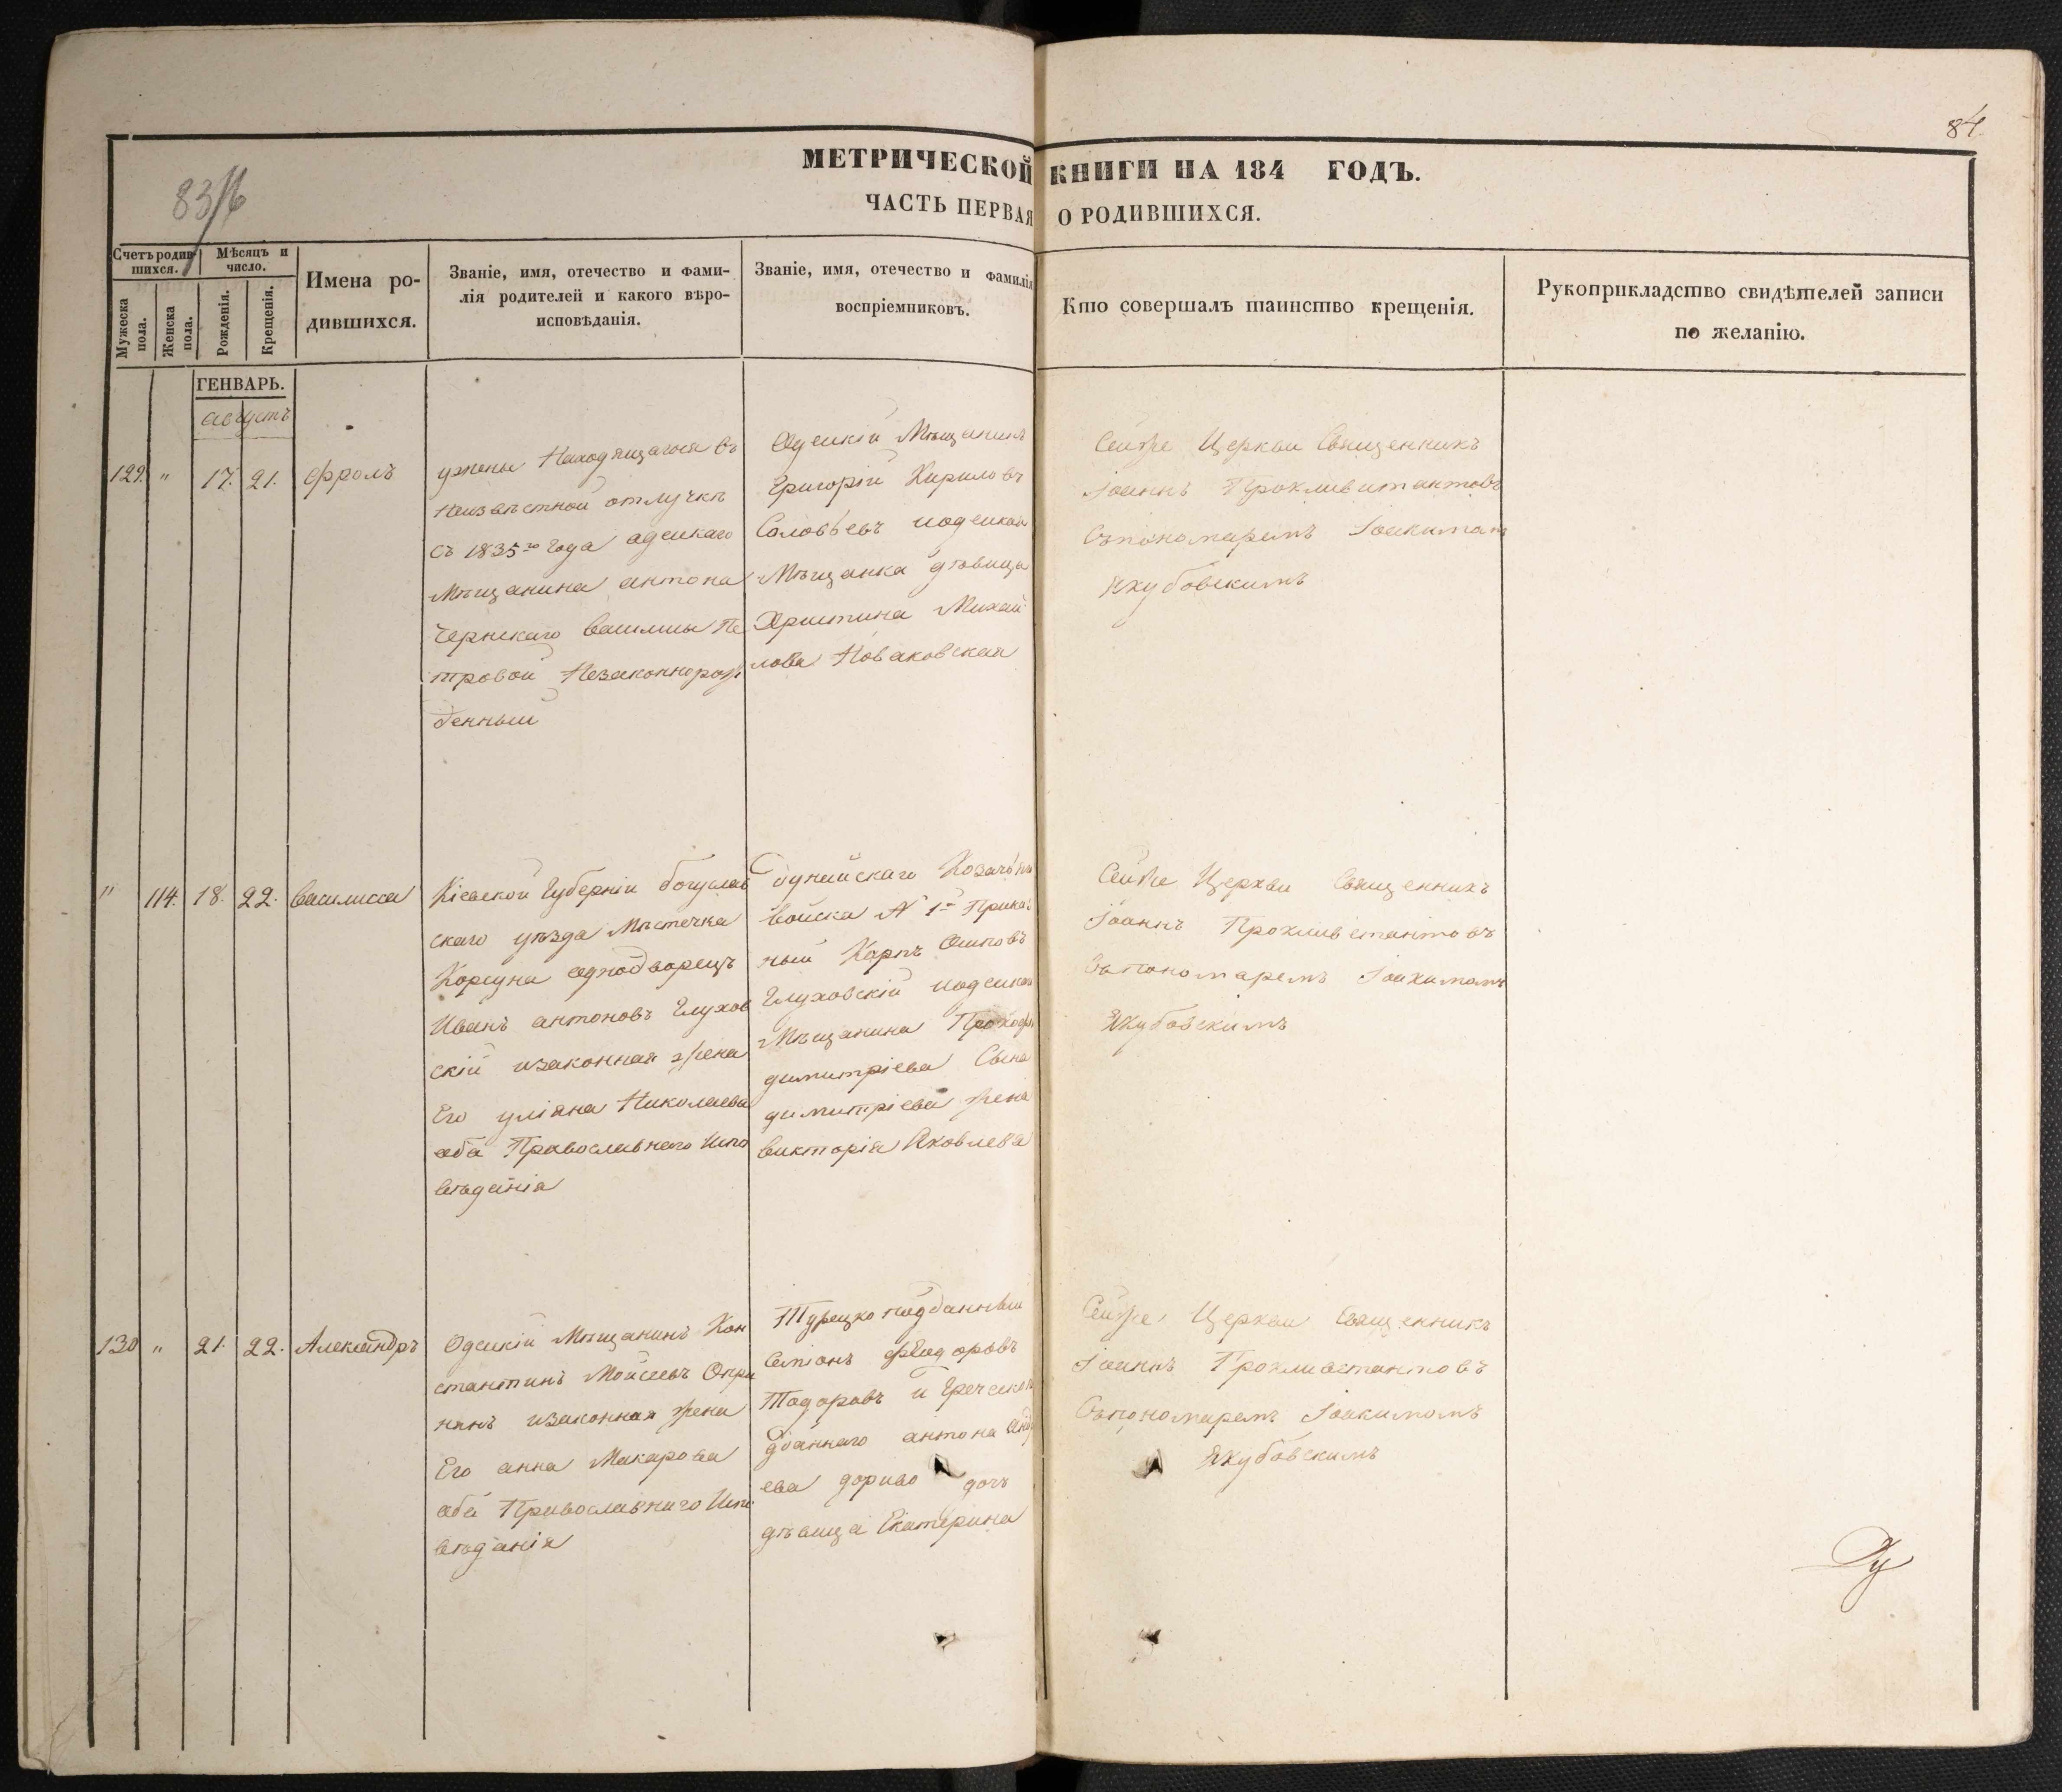 84.
83/6
МЕТРИЧЕСКОЙ КНИГИ НА 184 ГОДЪ.
ЧАСТЬ ПЕРВАЯ О РОДИВШИХСЯ.
Счетъ родив-
шихся.
Мужеска пола.
Женска пола.
Мѣсяцъ и
число.
Рожденія.
Крещенія.
Имена ро-
дившихся.
Званіе, имя, отечество и фами-
лія родителей и какого вѣро-
исповѣданія.
Званіе, имя, отечество и фамилія
воспріемниковъ.
Кто совершалъ таинство крещенія.
Рукоприкладство свидѣтелей записи
по желанію.
ГЕНВАРЬ.
августъ
129. " 17. 21. Фролъ
ужены Находящагося въ
Неизвѣстной отлучкѣ
съ 1835го года одескаго
Мѣщанина антона
Чернскаго василисы Пе
тровой Незаконнорож
денный
Одескій Мѣщанинъ
Григорій Кириловъ
Соловьевъ иодеская
Мѣщанка дѣвица
Христина Михай
лова Новаковская
Сейже Церкви Священникъ
Іоаннъ
Съпономаремъ Іоакимомъ
Якубовскимъ
" 114. 18. 22. василисса
Кіевской Губерніи богуслав
скаго уѣзда Мѣстечка
Корсуна однодворецъ
Иванъ антоновъ Глухов
скій изаконная жена
Его уліяна Николаева
оба Православнаго Испо
вѣданія
дунайскаго Козачьяго
войска № 1й Приказ
ный Карпъ Осиповъ
Глуховскій иодескаго
Мѣщанина Прокофія
димитріева Сына
димитріева жена
викторія Яковлева
Сейже Церкви Священникъ
Іоаннъ
Съпономаремъ Іоакимомъ
Якубовскимъ
130 " 21. 22. Александръ
Одескій Мѣщанинъ Кон
стантинъ Мойсеевъ
изаконная жена
Его анна Макарова
оба Православнаго Испо
вѣданія
Турецкоподданный
Семіонъ Феодоровъ
Тодоровъ и Греческопод
даннаго антона
ева дочь
дѣвица Екатерина
Сейже Церкви Священникъ
Іоаннъ
Съпономаремъ Іоакимомъ
Якубовскимъ